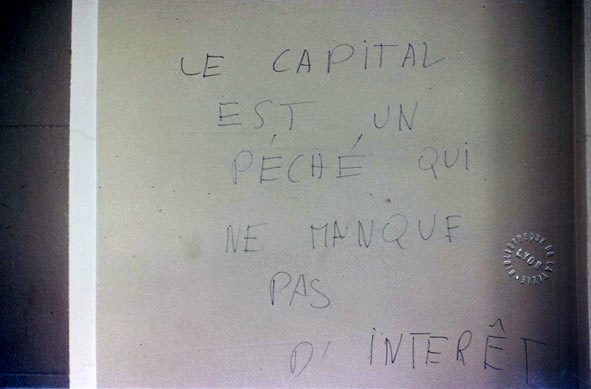 LE CAPITAL
EST UN
PÉCHÉ QUI
NE MANQUE
PAS
D'INTERÊT
BIBLIOTHEQUE DE LA VILLE
LYON